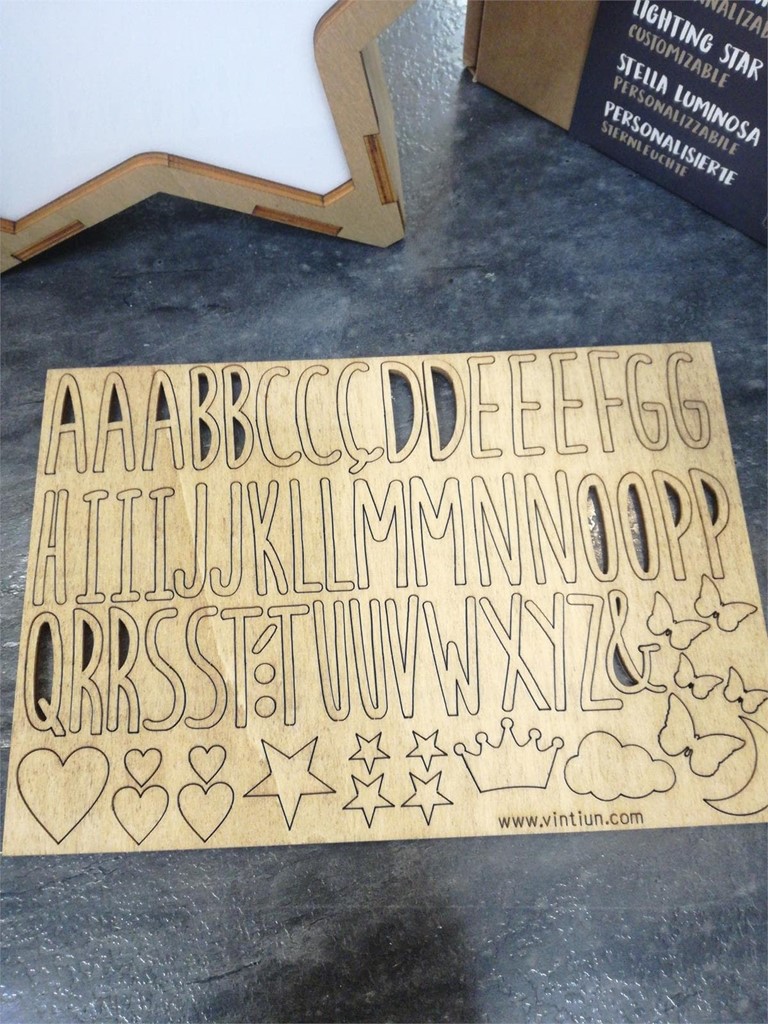 LIGHTING STAR
CUSTOMIZABLE
STELLA LUMINOSA
PERSONALIZZABILE
PERSONALISIERTE
STERNLEUCHTE
AAABBCCÇDDEEEFGG
HIIIJJKLLMMNNOOPP
QRRSST´:TUUVWXYZ&
www.vintiun.com